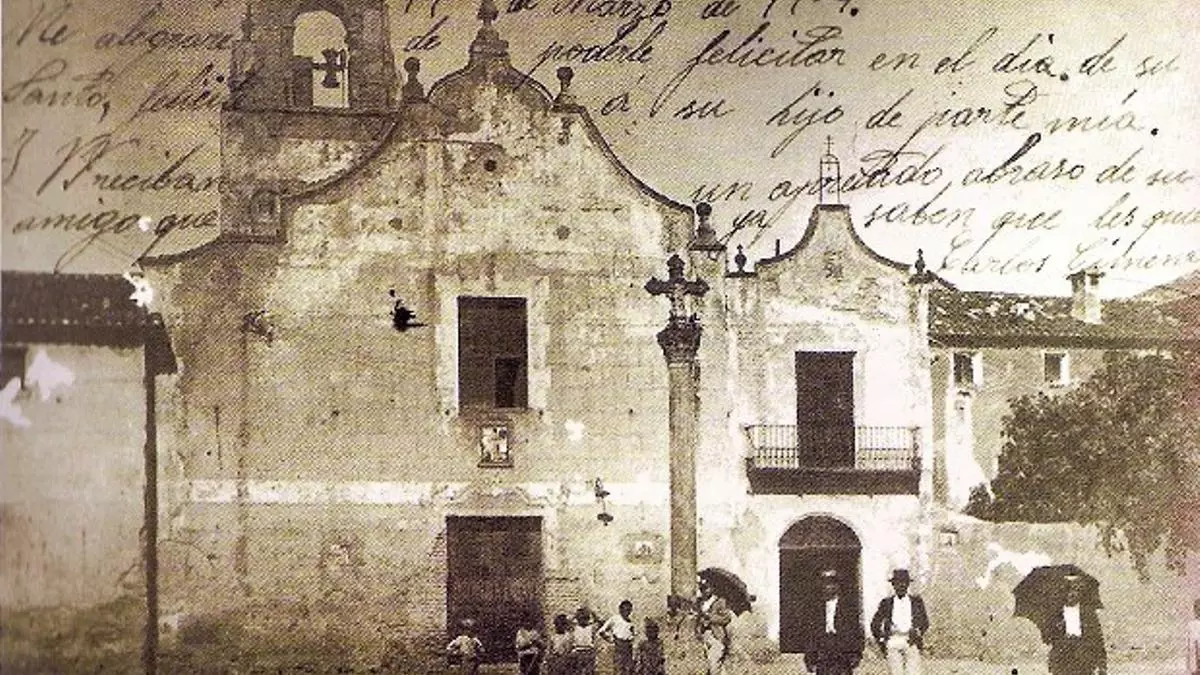 de Marzo de
Me alegraré de poderle felicitar en el dia de su
Santo, felicite á su hijo de parte mía.
Y reciban un apretado abraso de su
amigo que ya saben que les quie
Carlos Gimene